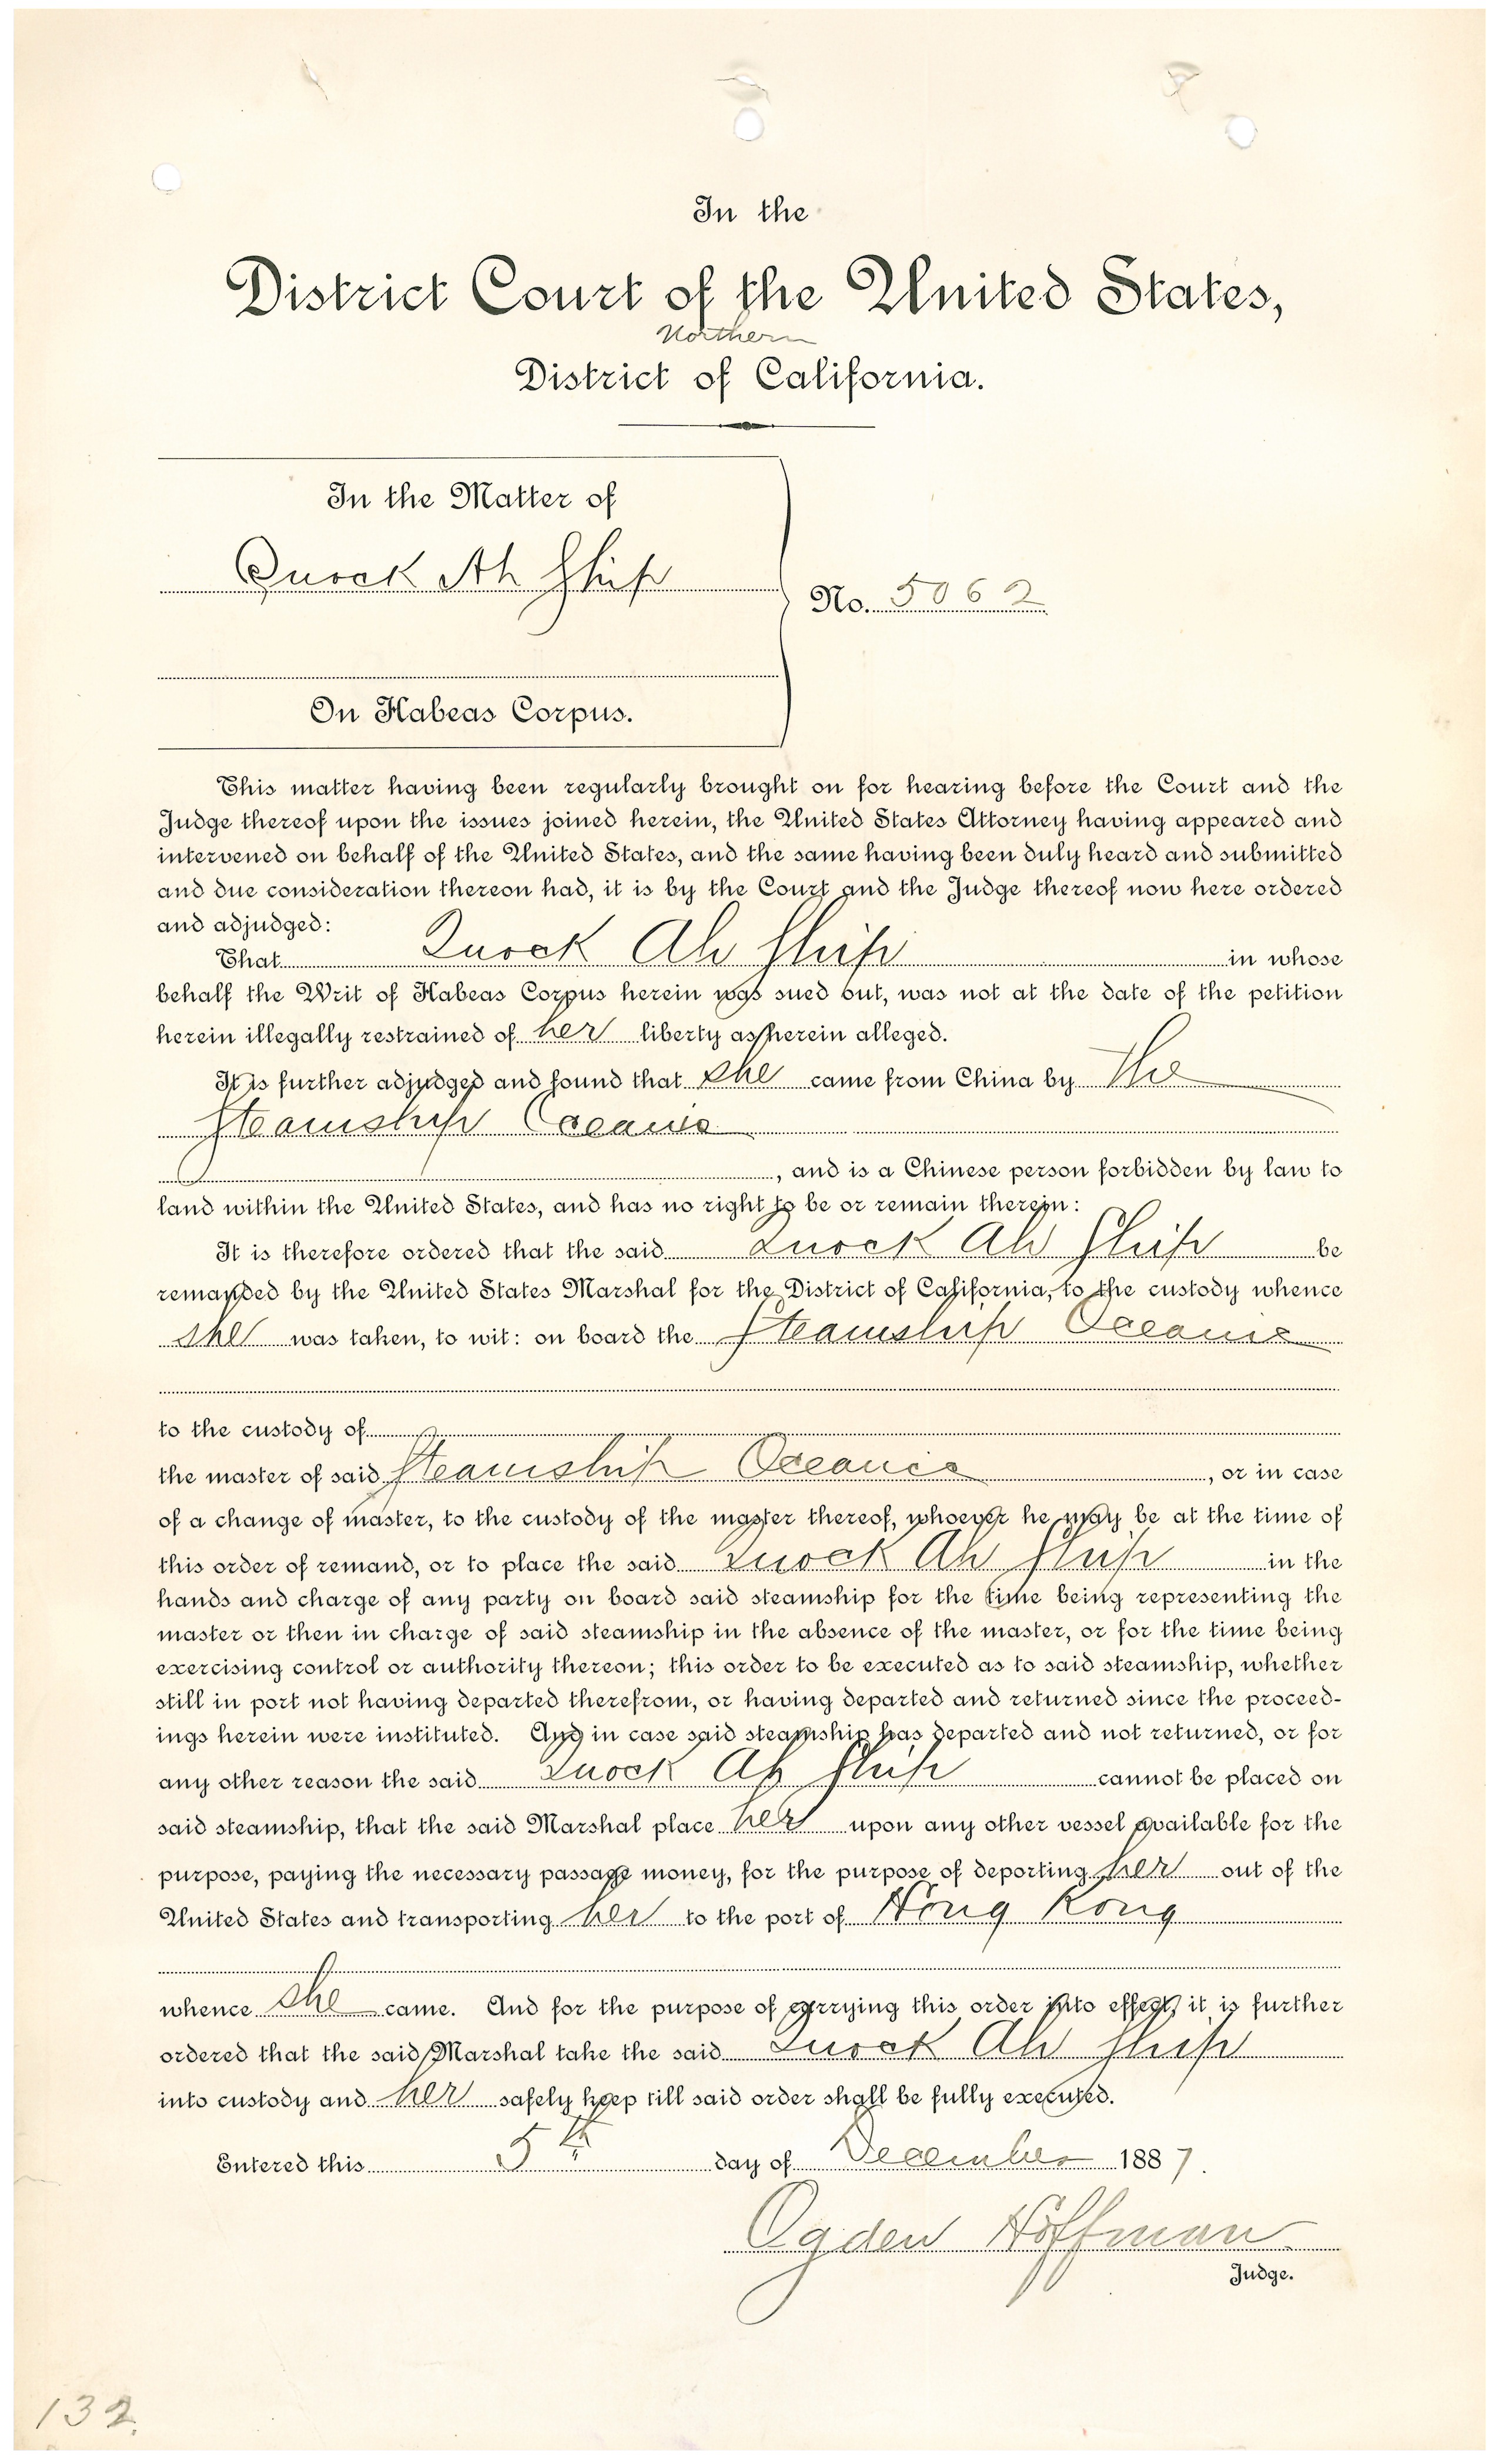 In the
District Court of the United States,
Northern
District of California.
In the Matter of
Quock Ah Ship
No. 5062
On Habeas Corpus.
This matter having been regularly brought on for hearing before the Court and the
Judge thereof upon the issues joined herein, the United States Attorney having appeared and
intervened on behalf of the United States, and the same having been duly heard and submitted
and due consideration thereon had, it is by the Court and the Judge thereof now here ordered
and adjudged:
That Quock Ah Ship in whose
behalf the Writ of Habeas Corpus herein was sued out, was not at the date of the petition
herein illegally restrained of her liberty as herein alleged.
It is further adjudged and found that she came from China by The
Steamship Oceanic
, and is a Chinese person forbidden by law to
land within the United States, and has no right to be or remain therein:
It is therefore ordered that the said Quock Ah Ship be
remanded by the United States Marshal for the District of California, to the custody whence
she was taken, to wit: on board the Steamship Oceanic
to the custody of
the master of said Steamship Oceanic, or in case
of a change of master, to the custody of the master thereof, whoever he may be at the time of
this order of remand, or to place the said Quock Ah Ship in the
hands and charge of any party on board said steamship for the time being representing the
master or then in charge of said steamship in the absence of the master, or for the time being
exercising control or authority thereon; this order to be executed as to said steamship, whether
still in port not having departed therefrom, or having departed and returned since the proceed-
ings herein were instituted. And in case said steamship has departed and not returned, or for
any other reason the said Quock Ah Ship cannot be placed on
said steamship, that the said Marshal place her upon any other vessel available for the
purpose, paying the necessary passage money, for the purpose of deporting her out of the
United States and transporting her to the port of Hong Kong
whence she came. And for the purpose of carrying this order into effect, it is further
ordered that the said Marshal take the said Quock Ah Ship
into custody and her safely keep till said order shall be fully executed.
Entered this 5th day of December 1887.
Ogden Hoffman
Judge.
132.